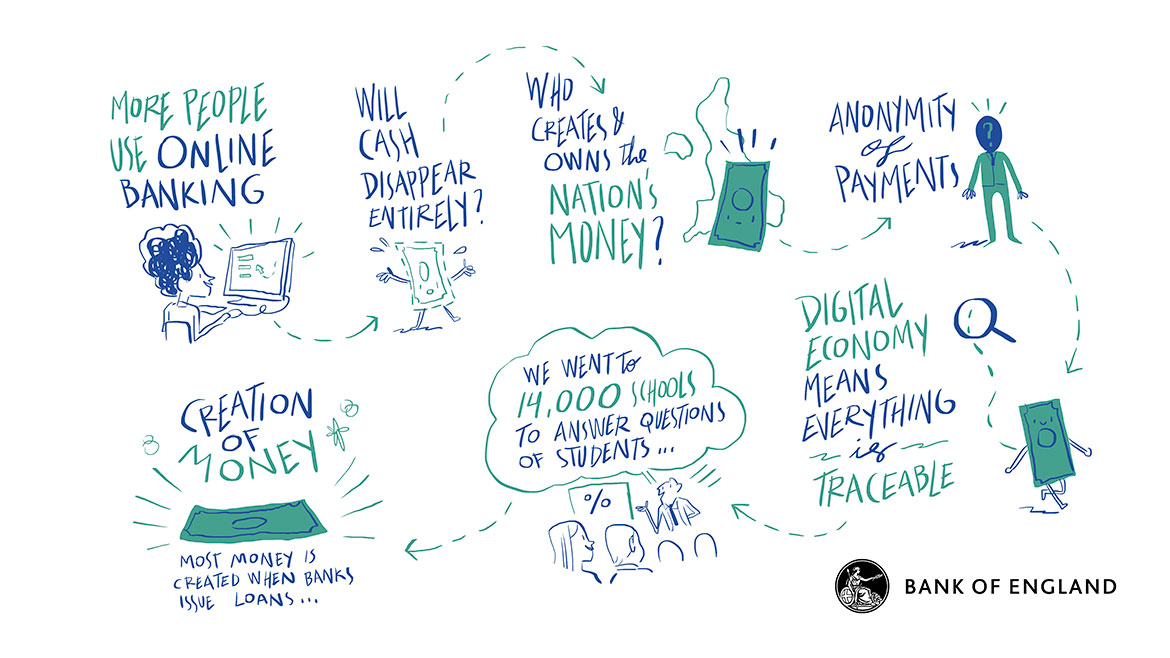 MORE PEOPLE
USE ONLINE
BANKING
WILL
CASH
DISAPPEAR
ENTIRELY?
WHO
CREATES &
OWNS the
NATION'S
MONEY?
ANONYMITY
of
PAYMENTS
?
DIGITAL
ECONOMY
MEANS
EVERYTHING
is
TRACEABLE
WE WENT to
14,000 SCHOOLS
TO ANSWER QUESTIONS
OF STUDENTS...
%
CREATION
OF
MONEY
MOST MONEY IS
CREATED WHEN BANKS
ISSUE LOANS...
BANK OF ENGLAND